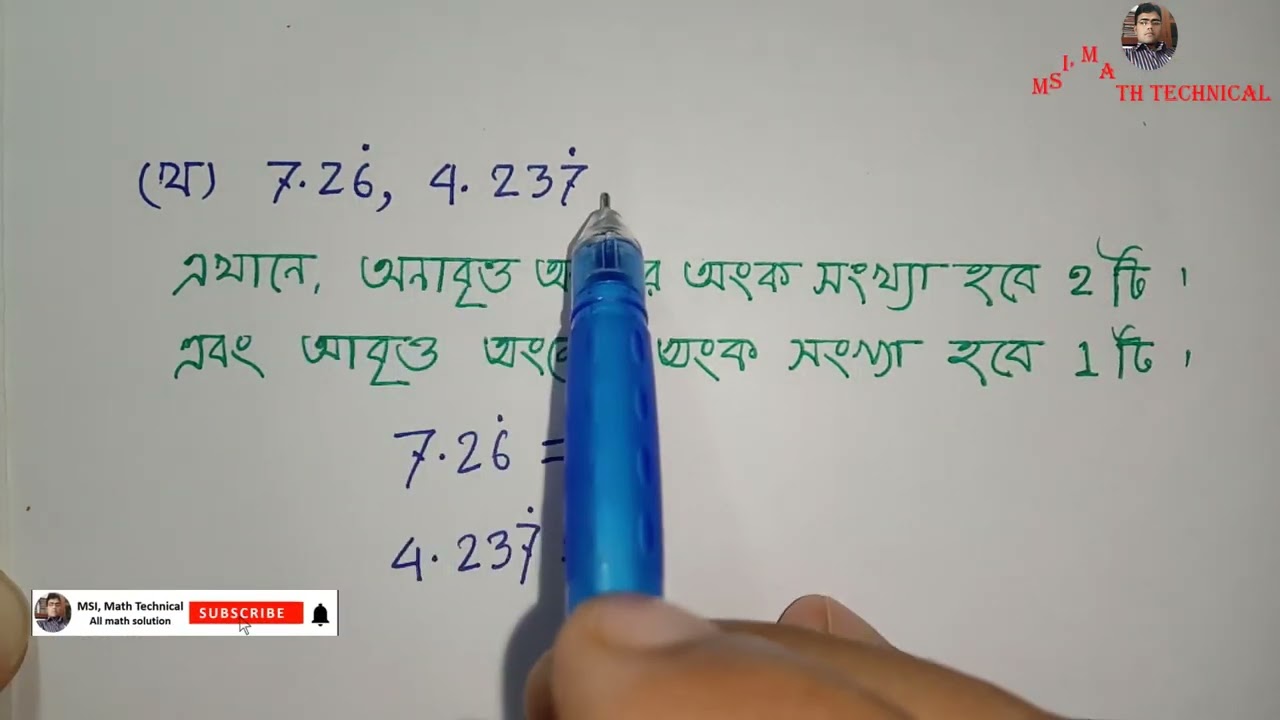 MSI, MATH TECHNICAL
(খ) 7.26̇, 4.237̇
এখানে, অনাবৃত্ত অংক সংখ্যা হবে 2 টি।
এবং আবৃত্ত অংক সংখ্যা হবে 1 টি।
7.26̇ =
4.237̇
MSI, Math Technical
All math solution
SUBSCRIBE